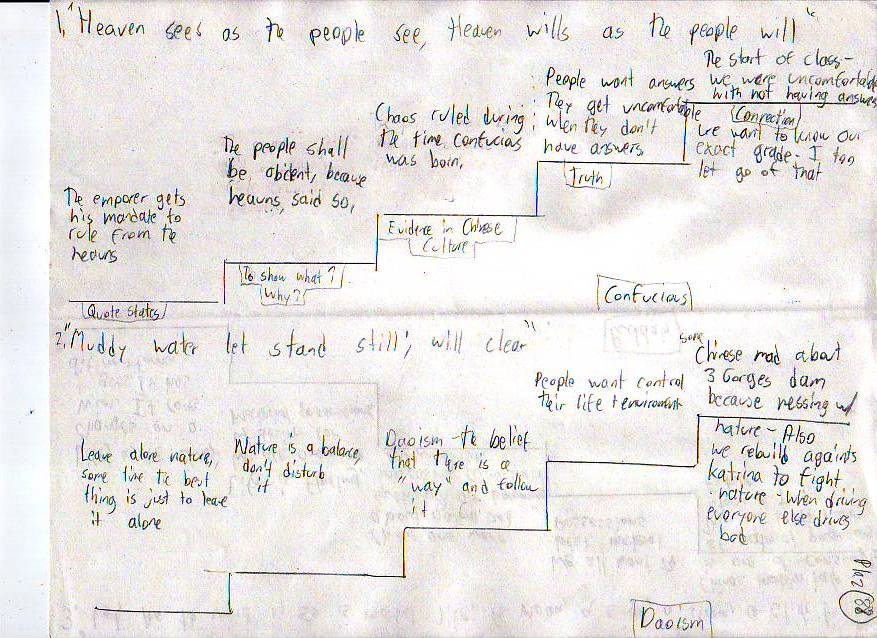 1. "Heaven sees as the people see, Heaven wills as the people will"
The emporer gets
his mandate to
rule from the
heavns
Quote States
The people shall
be obident, because
heavns, said so,
To show what?
Why?
Chaos ruled during
the time Confucias
was born,
Evidence in Chinese
Culture
People want answers
They get uncomfortable
when they don't
have answers
Truth
The start of class-
we were uncomfortable
with not having answers
Connection
we want to know our
exact grade - I too
let go of that
Confucious
2. "Muddy water let stand still, will clear"
Leave alone nature,
some time the best
thing is just to leave
it alone
Nature is a balance,
don't disturb
it
Daoism - the belief
that there is a
"way" and follow
it
People want control
their life + environment
some
Chinese mad about
3 Gorges dam
because messing w/
nature - Also
we rebuild againts
Katrina to fight
nature - when driving
everyone else drives
bad
Daoism
88